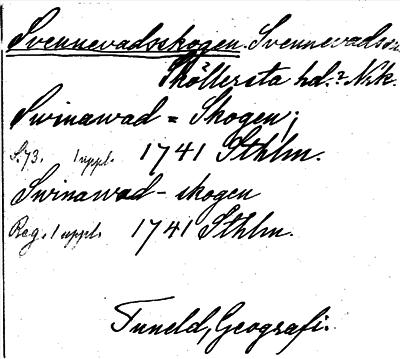 Svennevadsskogen. Svennevads sn
Sköllersta hd.? Nrk.
Swinawad = Skogen;
S. 73. 1 uppl. 1741 Sthlm.
Swinawad - skogen
Reg. 1 uppl. 1741 Sthlm.
Tuneld, Geografi.